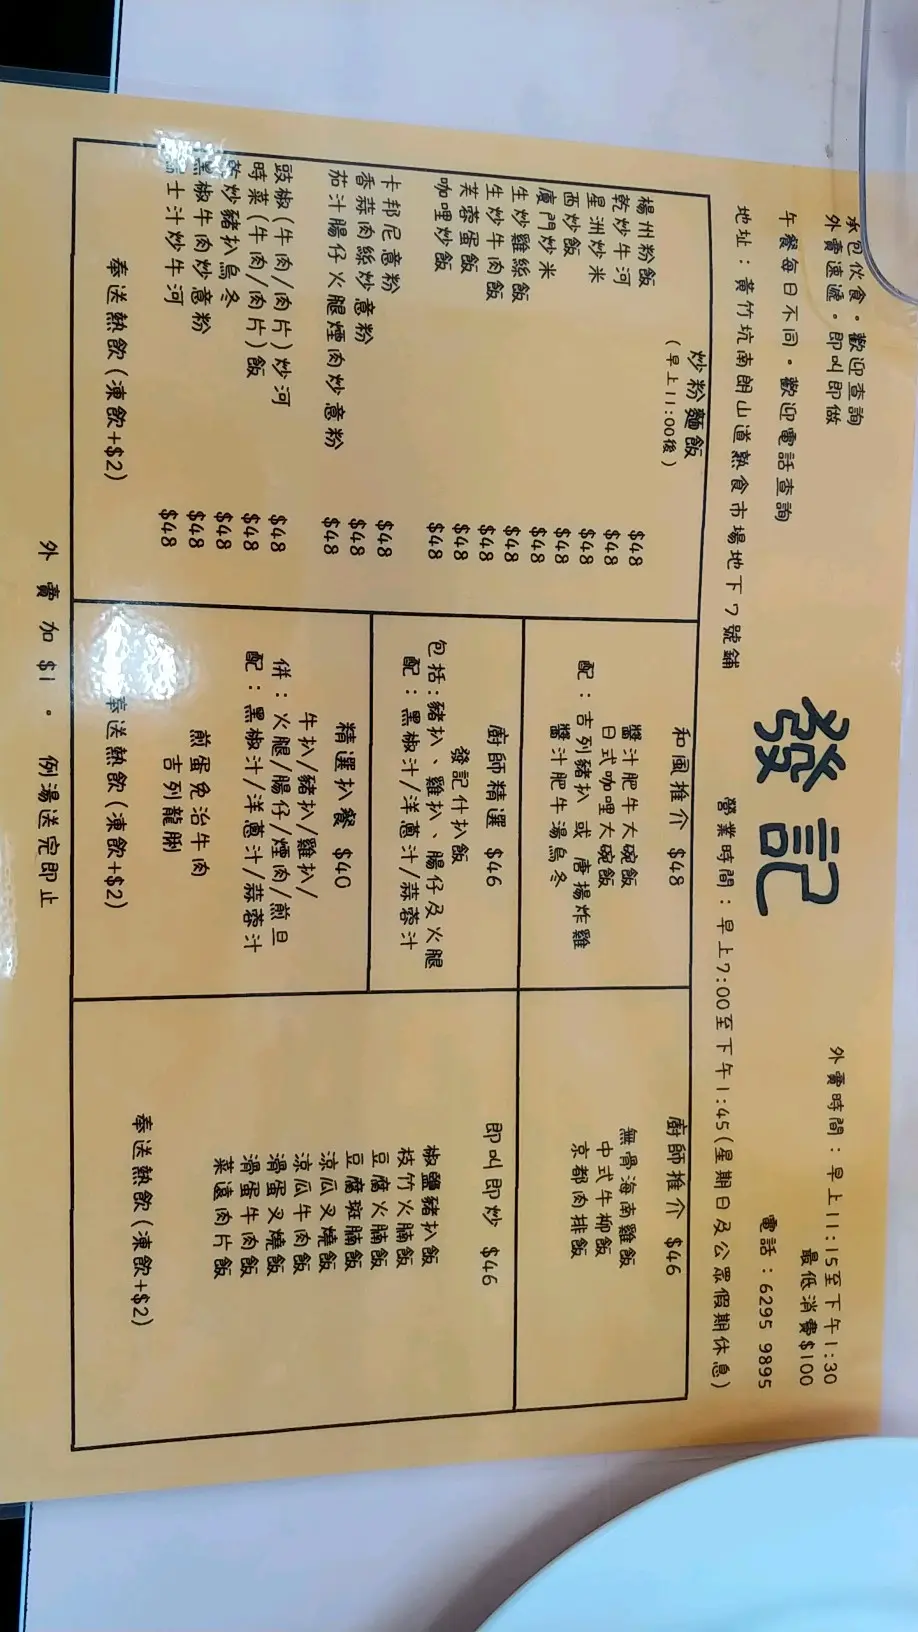 承包伙食。歡迎查詢
外賣速遞。即叫即做
午餐每日不同。歡迎電話查詢
地址：黃竹坑南朗山道熟食市場地下7號鋪
發記
外賣時間：早上11:15至下午1:30
最低消費$100
電話：6295 9895
營業時間：早上7:00至下午1:45(星期日及公眾假期休息)
炒粉麵飯
(早上11:00後)
楊州粉飯 $48
乾炒牛河 $48
星洲炒米 $48
西炒飯 $48
廈門炒米 $48
生炒雞絲飯 $48
生炒牛肉飯 $48
芙蓉蛋飯 $48
咖哩炒飯 $48
卡邦尼意粉 $48
香蒜肉絲炒意粉 $48
茄汁腸仔火腿煙肉炒意粉 $48
豉椒(牛肉/肉片)炒河 $48
時菜(牛肉/肉片)飯 $48
炒豬扒烏冬 $48
椒牛肉炒意粉 $48
士汁炒牛河 $48
奉送熱飲(凍飲+$2)
和風推介 $48
醬汁肥牛大碗飯
日式咖哩大碗飯
配：吉列豬扒 或 唐揚炸雞
醬汁肥牛湯烏冬
廚師精選 $46
發記什扒飯
包括:豬扒、雞扒、腸仔及火腿
配：黑椒汁/洋蔥汁/蒜蓉汁
精選扒餐 $40
牛扒/豬扒/雞扒/
併：火腿/腸仔/煙肉/煎旦
配：黑椒汁/洋蔥汁/蒜蓉汁
煎蛋免治牛肉
吉列龍脷
奉送熱飲(凍飲+$2)
廚師推介 $46
無骨海南雞飯
中式牛柳飯
京都肉排飯
即叫即炒 $46
椒鹽豬扒飯
枝竹火腩飯
豆腐火腩飯
豆腐斑腩飯
涼瓜叉燒飯
涼瓜牛肉飯
滑蛋叉燒飯
滑蛋牛肉飯
菜遠肉片飯
奉送熱飲(凍飲+$2)
外賣加$1。 例湯送完即止